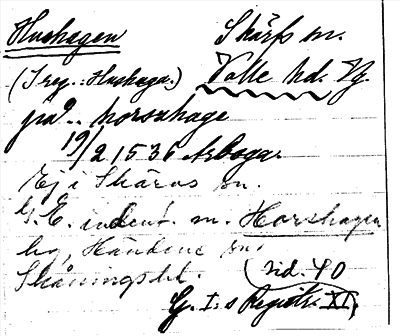 Hushagen Skärfs sn.
(I reg.: Hushaga.) Valle hd. Vg.
på horsuhage
19/2 1536 Arboga.
Ej i Skärvs sn.
E. ident. m. Horshagen
by, Händene sn.
Skånings hd. (sid. 40
G. I:s Registr. XI,